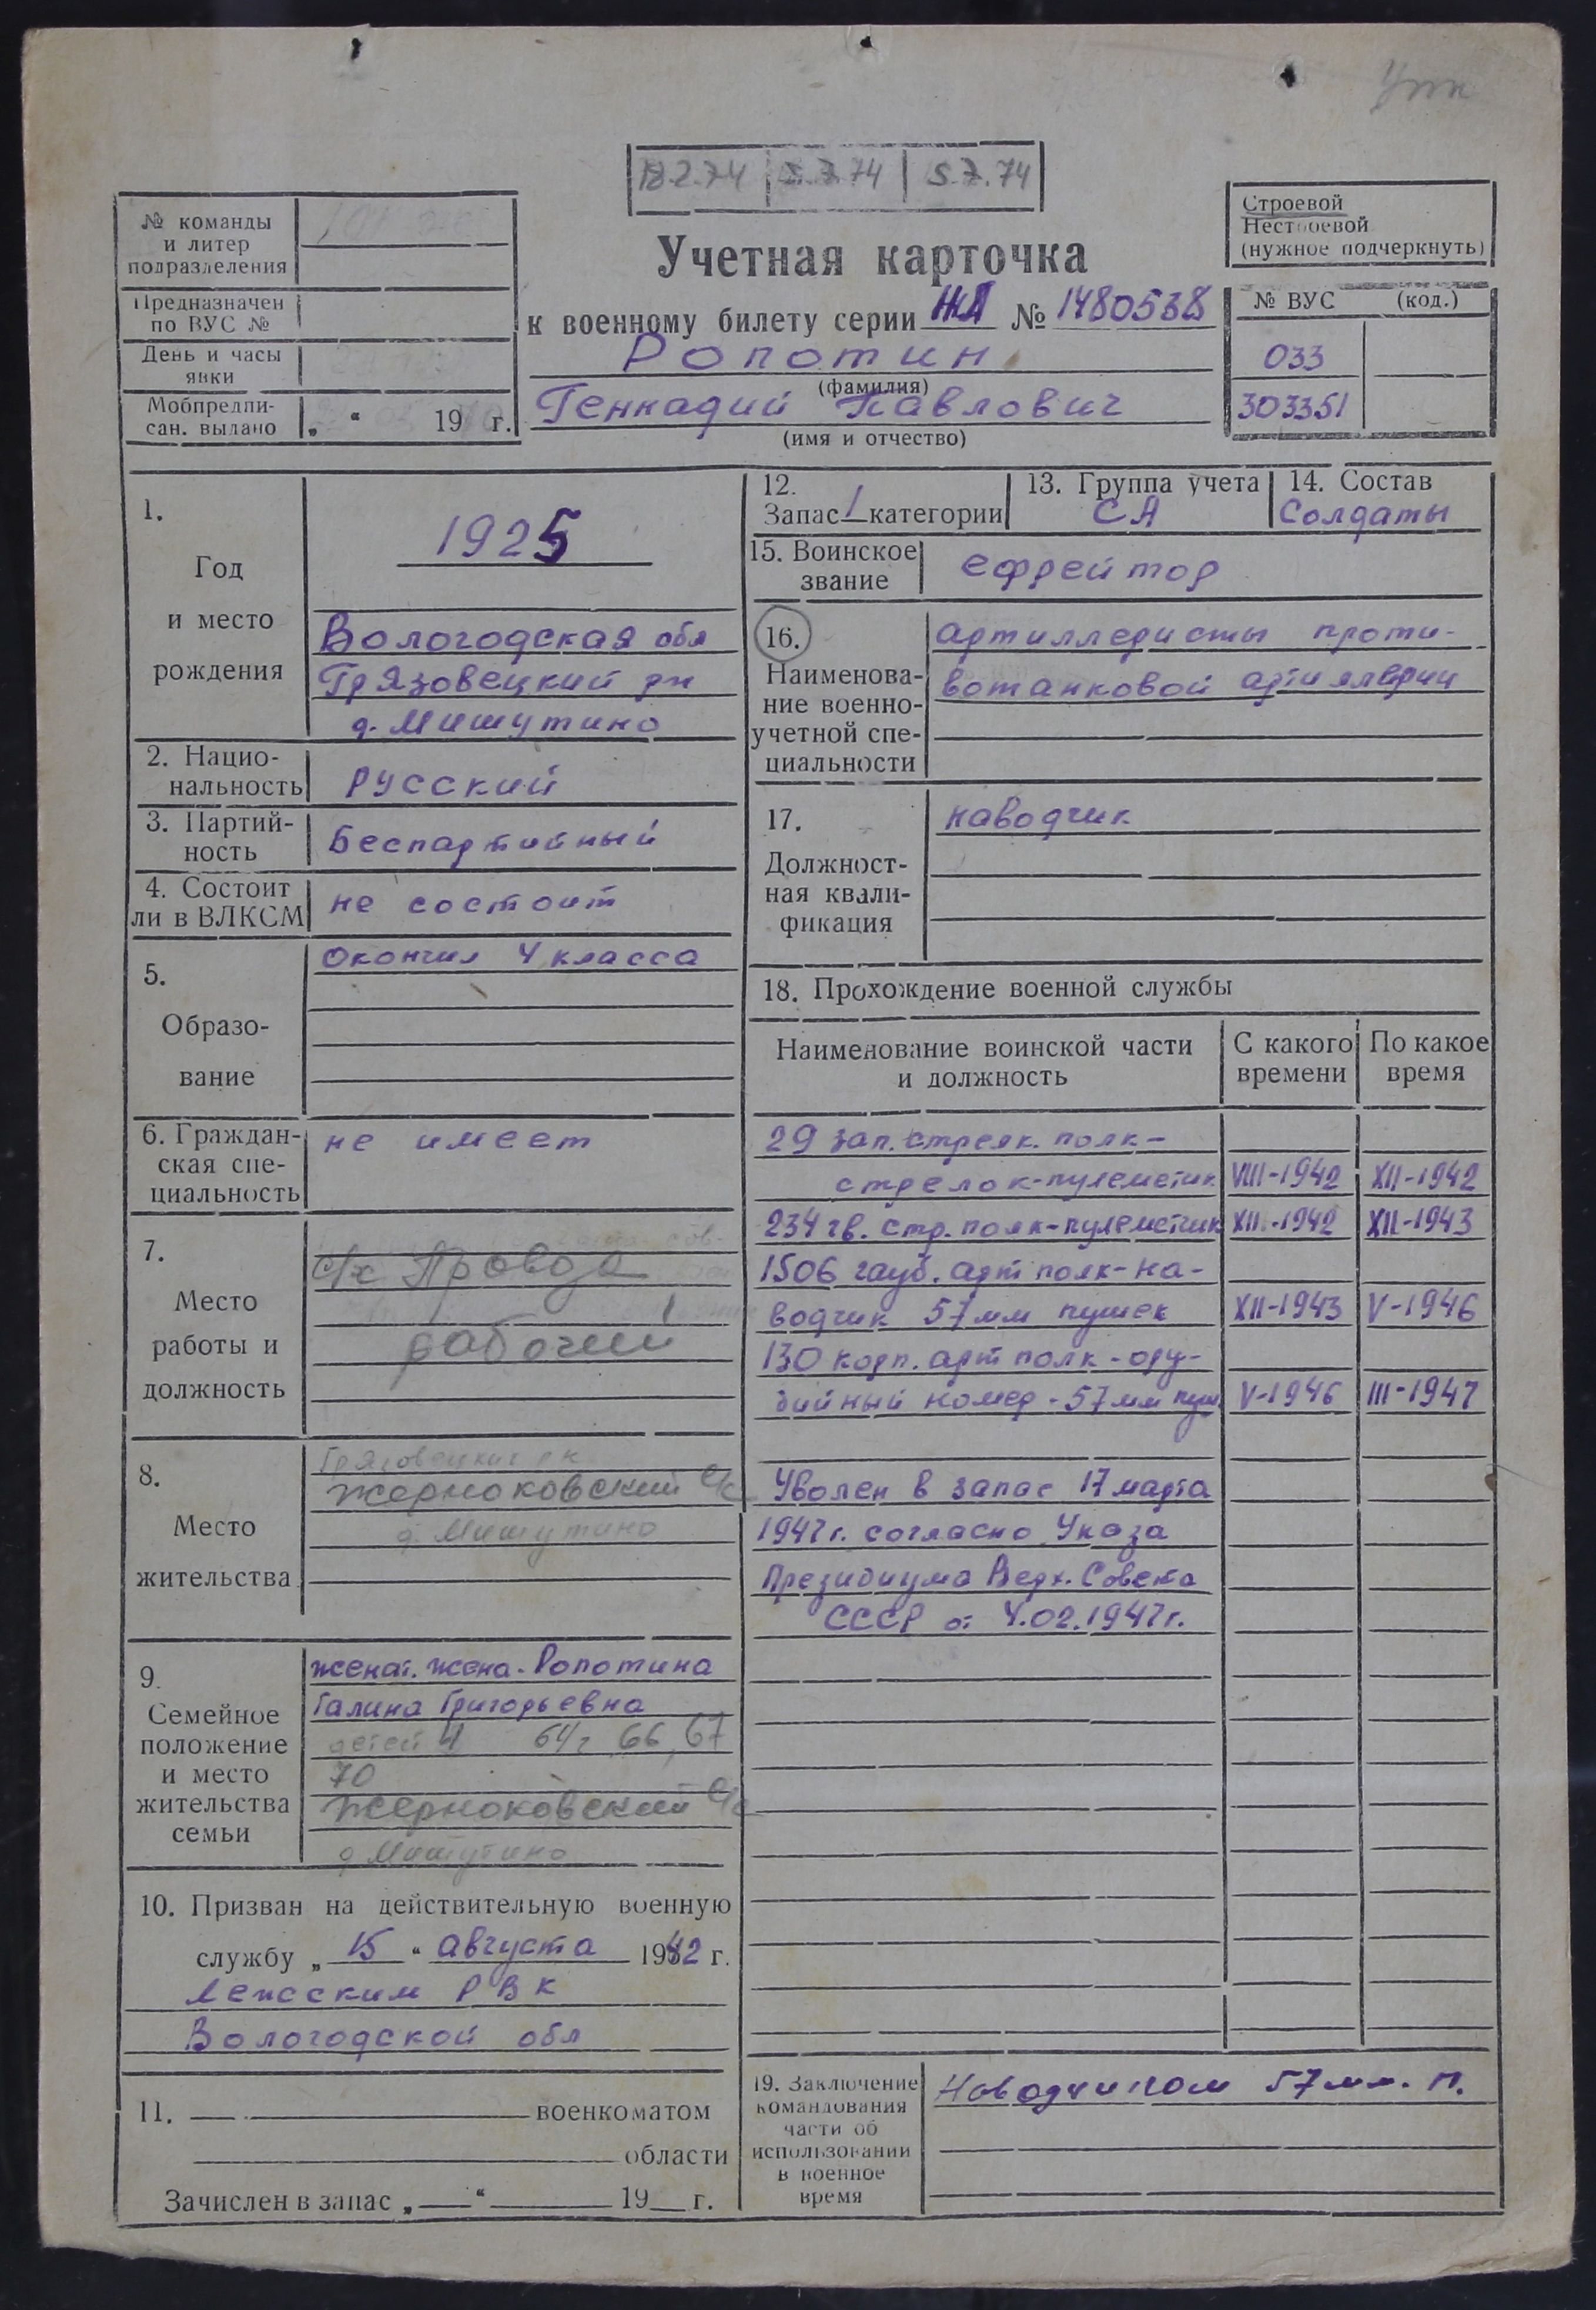 Упк
18.2.74 5.7.74 5.7.74
№ команды
и литер
подразделения
Предназначен
по ВУС №
День и часы
явки
Мобпредпи-
сан. выдано „ “ 19 г.
Учетная карточка
к военному билету серии № 1480538
Ропотин
(фамилия)
Геннадий Павлович
(имя и отчество)
Строевой
Нестроевой
(нужное подчеркнуть)
№ ВУС (код.)
033
303351
1.
Год
и место
рождения
1925
Вологодская обл
Грязовецкий рн
д. Мишутино
2. Нацио-
нальность
Русский
3. Партий-
ность
Беспартийный
4. Состоит
ли в ВЛКСМ
не состоит
5.
Образо-
вание
Окончил 4 класса
6. Граждан-
ская спе-
циальность
не имеет
7.
Место
работы и
должность
с/х Правда
рабочий
8.
Место
жительства
Грязовецкий рн
Жерноковский с/с
д. Мишутино
9.
Семейное
положение
и место
жительства
семьи
женат. жена - Ропотина
Галина Григорьевна
детей 4 64г 66, 67
70
Жерноковский с/с
д Мишутино
10. Призван на действительную военную
службу „ 15 “ августа 1942 г.
Лежским РВК
Вологодской обл
11. военкоматом
области
Зачислен в запас „ “ 19 г.
12.
Запас 1 категории
13. Группа учета
СА
14. Состав
Солдаты
15. Воинское
звание
ефрейтор
16.
Наименова-
ние военно-
учетной спе-
циальности
артиллеристы проти-
вотанковой артиллерии
17.
Должност-
ная квали-
фикация
наводчик
18. Прохождение военной службы
Наименование воинской части
и должность
С какого
времени
По какое
время
29 зап. стрелк. полк -
стрелок-пулеметчик VIII-1942 XII-1942
234 гв. стр. полк-пулеметчик XII-1942 XII-1943
1506 гауб. арт полк - на-
водчик 57 мм пушек XII-1943 V-1946
130 корп. арт полк - ору-
дийный номер - 57 мм пуш. V-1946 III-1947
Уволен в запас 17 марта
1947 г. согласно Указа
Президиума Верх. Совета
СССР от 4.02.1947 г.
19. Заключение
командования
части об
использовании
в военное
время
Наводчиком 57 мм. п.